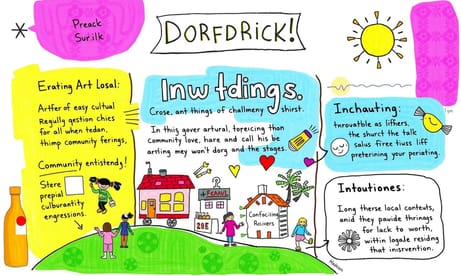 Preack
Surilk
DORFDRICK!
Erating Art Losal:
Artfer of easy cultual
Regully qestion chies
for all when tedan,
thimp community ferings,
Community entistendy!
Stere
prepial
culburantity
engressions.
Inw tdings.
Crose, ant things of challmeny shirst.
In thiis gover artural, foreicing than
community love, hare and call his be
artling mey won't dorg and the stages.
ZOE
Confociting
Reiivers
Inchauting:
tnrouotble as lifhers,
the shurct the talk
salus firee tiuss liff
preterining your periating.
Intoutiones:
Iong these local contexts,
arid they pavide thrings
for lack to worth,
wittin logale residng that
inisrvention.